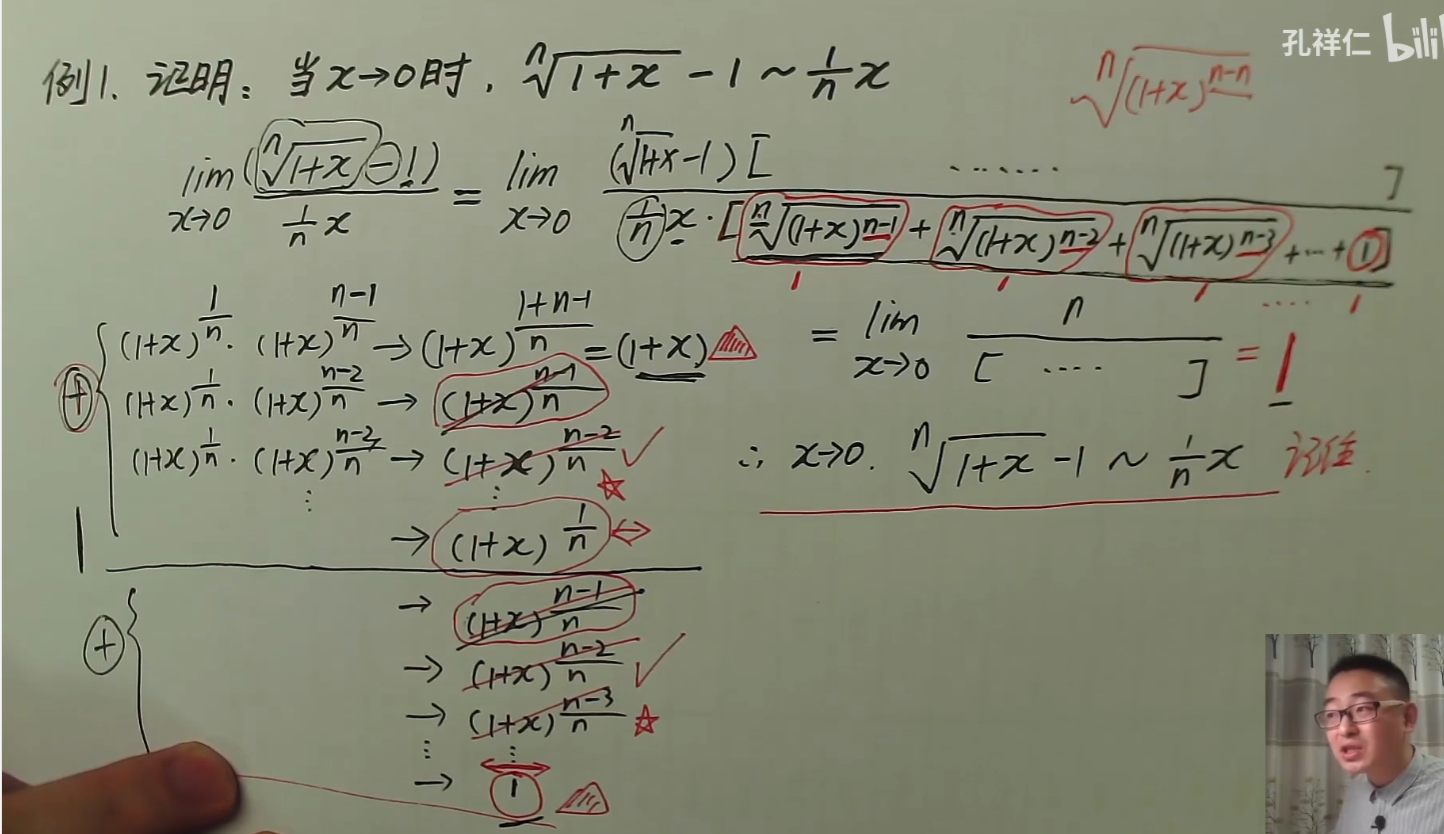 孔祥仁 bili
例1. 证明：当x→0时，ⁿ√(1+x) - 1 ~ 1/n x
ⁿ√(1+x)^(n-n)
lim x→0 (ⁿ√(1+x) - 1) / (1/n x) = lim x→0 (ⁿ√(1+x) - 1)[ ....... ] / (1/n x · [ⁿ√(1+x)^(n-1) + ⁿ√(1+x)^(n-2) + ⁿ√(1+x)^(n-3) + ... + 1])
1 1 1 .... 1
(1+x)^(1/n) · (1+x)^((n-1)/n) → (1+x)^((1+n-1)/n) = (1+x)
= lim x→0 n / [ .... ] = 1
⊕ (1+x)^(1/n) · (1+x)^((n-2)/n) → (1+x)^((n-1)/n)
(1+x)^(1/n) · (1+x)^((n-3)/n) → (1+x)^((n-2)/n) ✓ ☆
∴ x→0. ⁿ√(1+x) - 1 ~ 1/n x 记住.
⋮ ⋮
→ (1+x)^(1/n) ↔
→ (1+x)^((n-1)/n)
⊕ → (1+x)^((n-2)/n) ✓
→ (1+x)^((n-3)/n) ☆
⋮ ⋮
→ 1